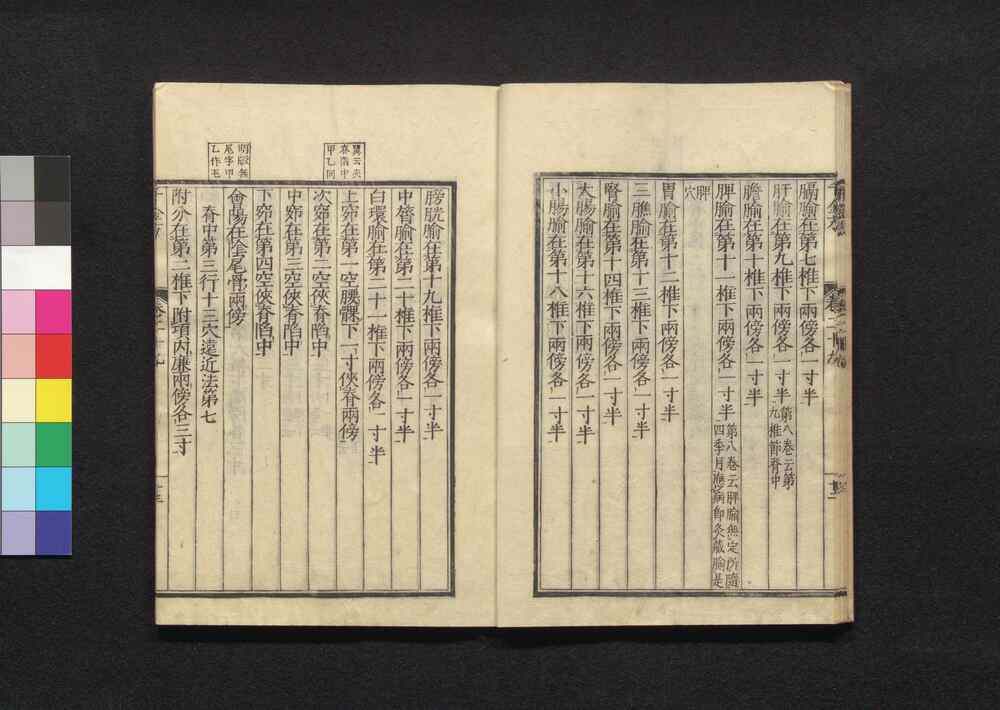 膈腧在第七椎下兩傍各一寸半
肝腧在第九椎下兩傍各一寸半第八卷云第
九椎節脊中
膽腧在第十椎下兩傍各一寸半
脾腧在第十一椎下兩傍各一寸半第八卷云脾腧無定所隨
四季月應病即灸藏腧是
脾
穴
胃腧在第十二椎下兩傍各一寸半
三膲腧在第十三椎下兩傍各一寸半
腎腧在第十四椎下兩傍各一寸半
大腸腧在第十六椎下兩傍各一寸半
小腸腧在第十八椎下兩傍各一寸半
膀胱腧在第十九椎下兩傍各一寸半
中膂腧在第二十椎下兩傍各一寸半
白環腧在第二十一椎下兩傍各一寸半
翼云夾
脊陷中
甲乙同
上窌在第一空腰髁下一寸俠脊兩傍
次窌在第二空俠脊陷中
中窌在第三空俠脊陷中
下窌在第四空俠脊陷中
明版無
尾字甲
乙作毛
會陽在陰尾骨兩傍
脊中第三行十三穴遠近法第七
附分在第二椎下附項内廉兩傍各三寸